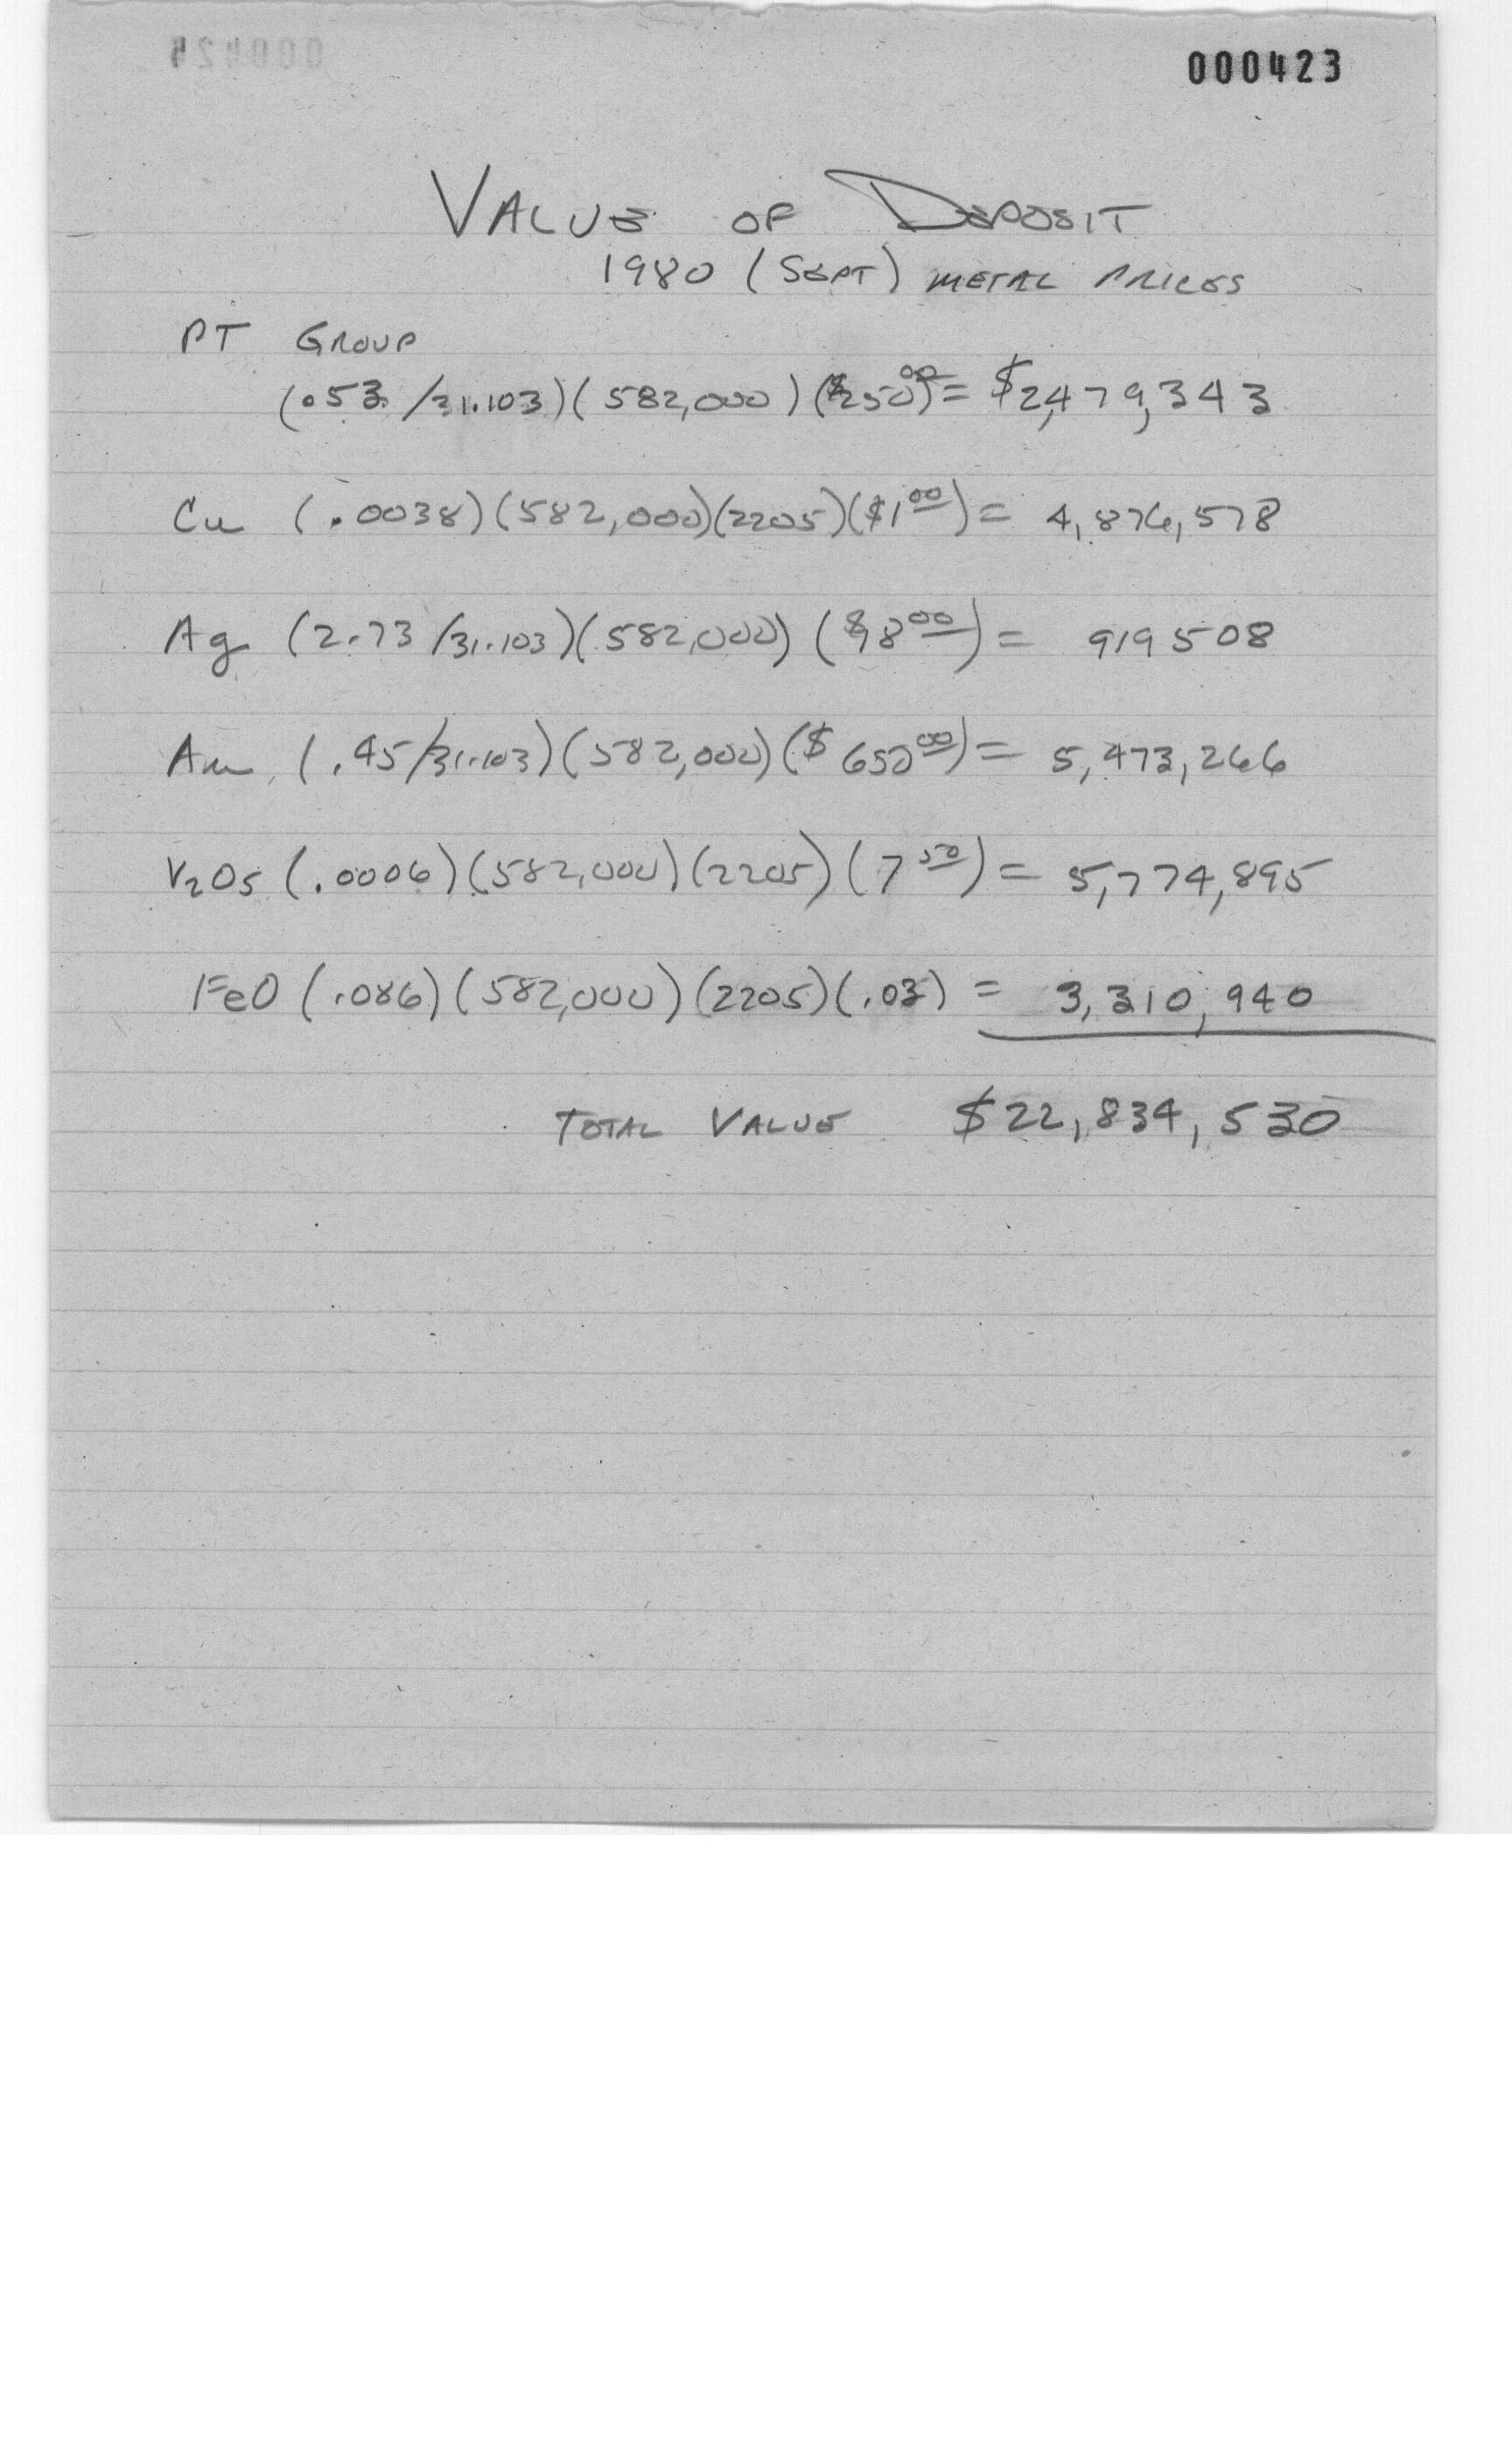 000423
VALUE OF DEPOSIT
1980 (SEPT) METAL PRICES
PT GROUP
(.53/31.103)(582,000)($250⁰⁰)= $2,479,343
Cu (.0038)(582,000)(2205)($1⁰⁰)= 4,876,578
Ag (2.73/31.103)(582,000)($18⁰⁰)= 919508
Au (.45/31.103)(582,000)($650⁰⁰)= 5,473,266
V2O5 (.0006)(582,000)(2205)(7⁵⁰)= 5,774,895
FeO (.086)(582,000)(2205)(.03) = 3,310,940
TOTAL VALUE $22,834,530